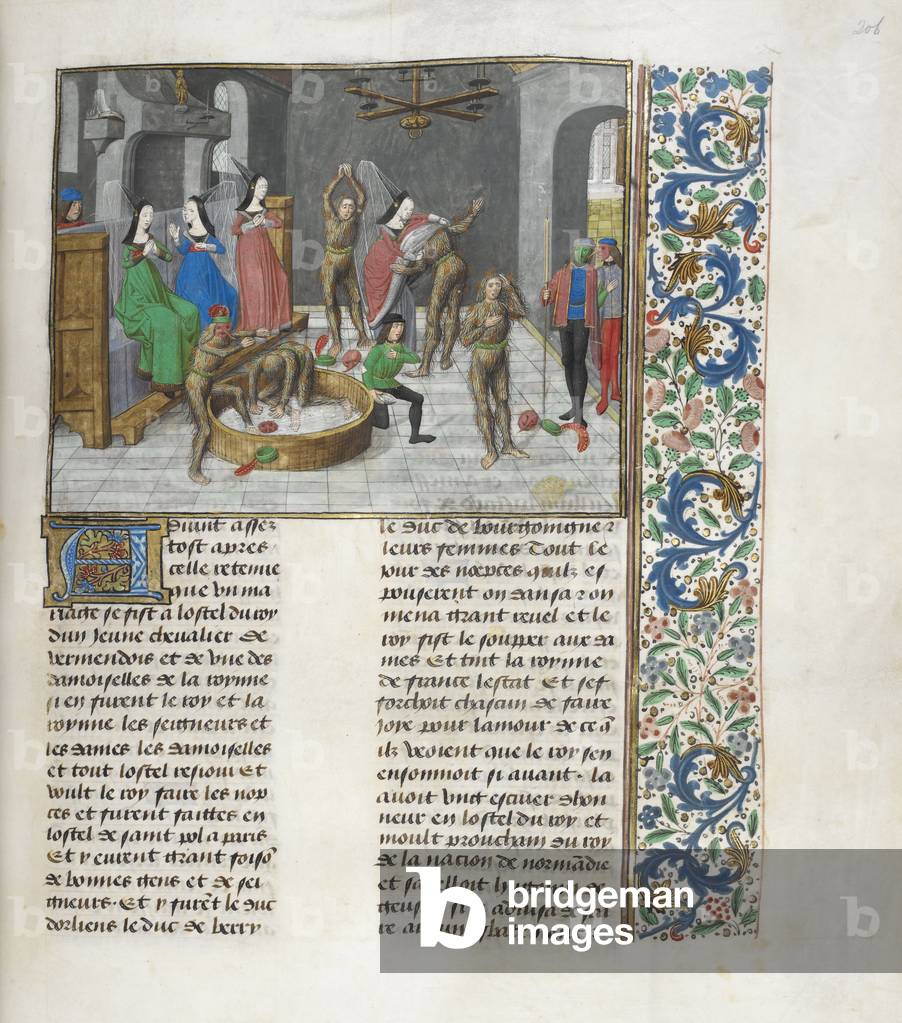 206
Advint assez
tost apres
celle retenue
que un ma
riage se fist a lostel du roy
dun jeune chevalier de
vermendois et de une des
damoiselles de la royne
si en furent le roy et la
royne les seigneurs et
les dames les damoiselles
et tout lostel resjoui Et
voult le roy faire les nop
ces et furent faittes en
lostel de saint pol a paris
Et y eurent grant foiso
de bonnes gens et de sei
gneurs. Et y furet le duc
dorliens le duc de berry
le duc de bourgoingne z
leurs femmes Tout le
jour des nopces quilz es
pouserent on dansa z on
mena grant revel et le
roy fist le soupper aux da
mes Et tint la royne
de france lestat Et sef
forchoit chascun de faire
joye pour lamour de ce q
ilz veoient que le roy sen
ensonnioit si avant. la
avoit ung escuier dhon
neur en lostel du roy et
moult prouchain du roy
de la nacion de normadie
et sappelloit
bridgeman
images